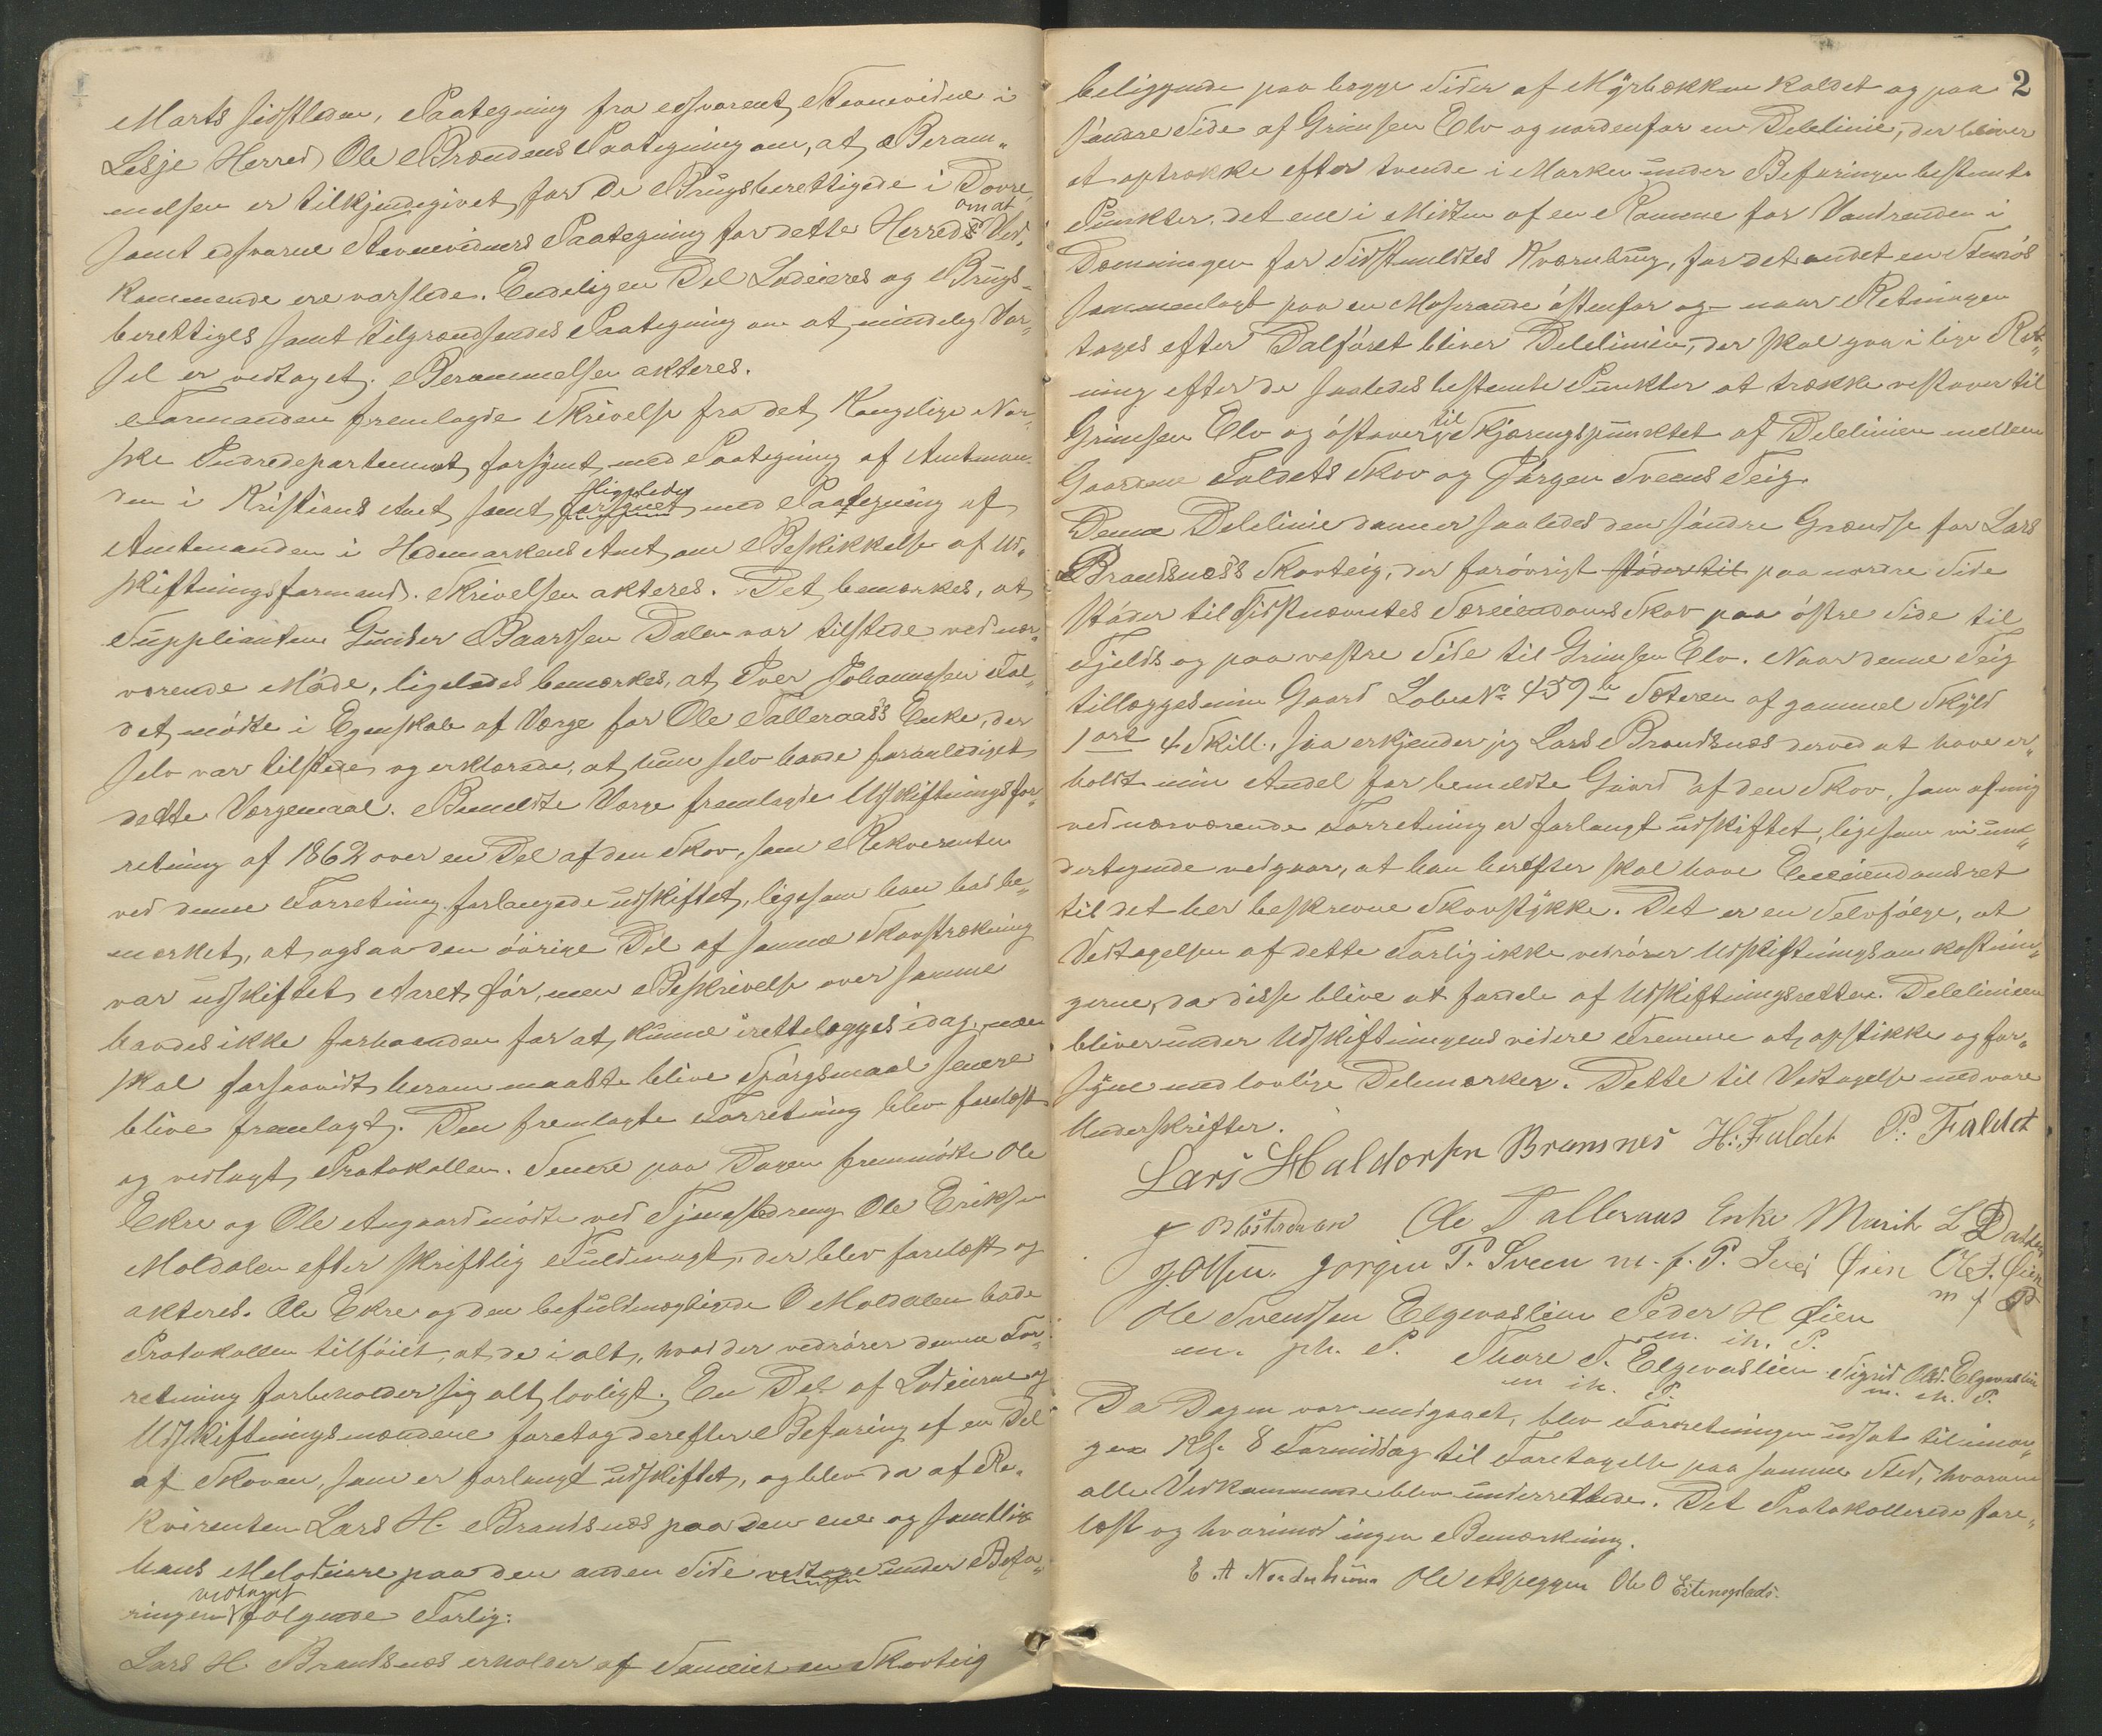 Marts sidstleden, Paategning fra edsvorent Stevnevidne i
Lesje Herred Ole Brændens Paategning om, at Beram-
melsen er tilkjendegivet for de Brugsberettigede i Dovre,
samt edsvorne Stevnevidners Paategning for dette Herred om at Ved-
kommende ere varslede. Endeligen Del Lodeieres og Brugs-
berettiges samt tilgrændsendes Paategning om at mindelig Var-
sel er vedtaget. Berammelsen akteres.
Formanden fremlagde Skrivelse fra det Kongelige Nor-
ske Indredepartement forsynt med Paategning af Amtman-
den i Kristians Amt samt ligeledes med Paategning af
Amtmanden i Hedemarkens Amt om Beskikkelse af Ud-
skiftningsformand. Skrivelsen akteres. Det bemærkes, at
Supplianten Gunder Baardsen Dalen var tilstede ved nær-
værende Møde, ligeledes bemærkes, at Iver Johannesen Fal-
det mødte i Egenskab af Værge for Ole Talleraas's Enke, der
selv var tilstede og erklærede, at hun selv havde foranlediget
dette Værgemaal. Bemeldte Værge fremlagde Udskiftningsfor-
retning af 1862 over en Del af den Skov, som Rekvirenten
ved denne Forretning forlangede udskiftet, ligesom han bad be-
mærket, at ogsaa den övrige Del af samme Skovstrækning
var udskiftet Aaret för, men Beskrivelse over samme
havdes ikke forhaanden for at kunne irettelægges idag, men
skal forsaavidt herom maatte blive Spörgsmaal senere
blive fremlagt. Den fremlagte Forretning blev forelæst
og vedlagt Protokollen. Senere paa Dagen fremmödte Ole
Ekre og Ole Angaard mödte ved Tjenestedreng Ole Eriksen
Moldalen efter skriftlig Fuldmagt, der blev forelæst og
akteres. Ole Ekre og den befuldmægtigede O Moldalen bade
Protokollen tilföiet, at de i alt, hvad der vedrörer denne For-
retning forbeholder sig alt lovligt. En Del af Lodeierne og
Udskiftningsmændene foretog derefter Befaring af en Del
af Skoven, som er forlangt udskiftet, og blev da af Re-
kvirenten Lars H. Brandsnæs paa den ene og samtlige
hans Medlodeiere paa den anden Side under Befa-
ringen vedtaget følgende Forlig:
Lars H Brandsnæs erholder af Sameiet en Skovteig
2
beliggende paa begge Sider af Myrbækken kaldet og paa
söndre Side af Grimsen Elv og nordenfor en Delelinie, der bliver
at optrække efter tvende i Marken under Befaringen bestemte
Punkter, det ene i Midten af en Ramme for Vandrenden i
Dæmningen for Sidstmeldtes Kværnbrug, for det andet en Stenrös
sammenlagt paa en Mosrande östenfor og naar Retningen
tages efter Dalföret bliver Delelinien, der skal gaa i lige Ret-
ning efter de saaledes bestemte Punkter at trække vestover til
Grimsen Elv og östover til Skjæringspunktet af Delelinien mellem
Gaardene Faldets Skov og Jörgen Sveens Teig.
Denne Delelinie danner saaledes den söndre Grændse for Lars
Brandsnæs's Skovteig, der forövrigt støder til paa nordre Side
støder til Sidstnævntes Særeiendoms Skov paa östre Side til
Fjelds og paa vestre Side til Grimsen Elv. Naar denne Teig
tillægges min Gaard Løbe No 459 b Sæteren af gammel Skyld
1 ort 4 Skill., saa erkjender jeg Lars Brandsnæs derved at have er-
holdt min Andel for bemeldte Gaard af den Skov, som af mig
ved nærværende Forretning er forlangt udskiftet, ligesom vi und-
dertegnede vedgaar, at han herefter skal have Eneeiendomsret
til det her beskrevne Skovstykke. Det er en Selvfölge, at
Vedtagelsen af dette Forlig ikke vedrörer Udskiftningsomkostnin-
gerne, da disse blive at fordele af Udskiftningsretten. Delelinien
bliver under Udskiftningens videre Fremme at opstikke og for-
syne med lovlige Delemærker. Dette til Vedtagelse med vore
Underskrifter.
Lars Haldorsen Bransnes H: Faldet P: Faldet
Ole Talleraas Enke Marit L Datter
J Olsen. Jorgen P. Sveen m. f. P. Øien O. J. Øien
Ole Svendsen Elgevaslien Peder H Øien m f P
m. ph. P. m. ih. P.
Thore S. Elgevaslien Sigrid Olsd. Elgevaslien
m ih. P. m. ih. P.
Da Dagen var medgaaet, blev Forretningen udsat til imor-
gen Kl. 8 Formiddag til Foretagelse paa samme Sted, hvorom
alle Vedkommende blev underrettede. Det Protokollerede fore-
læst og hvorimod ingen Bemærkning.
E. A Norduhüna Ole Aspeggen Ole O Estensplads.